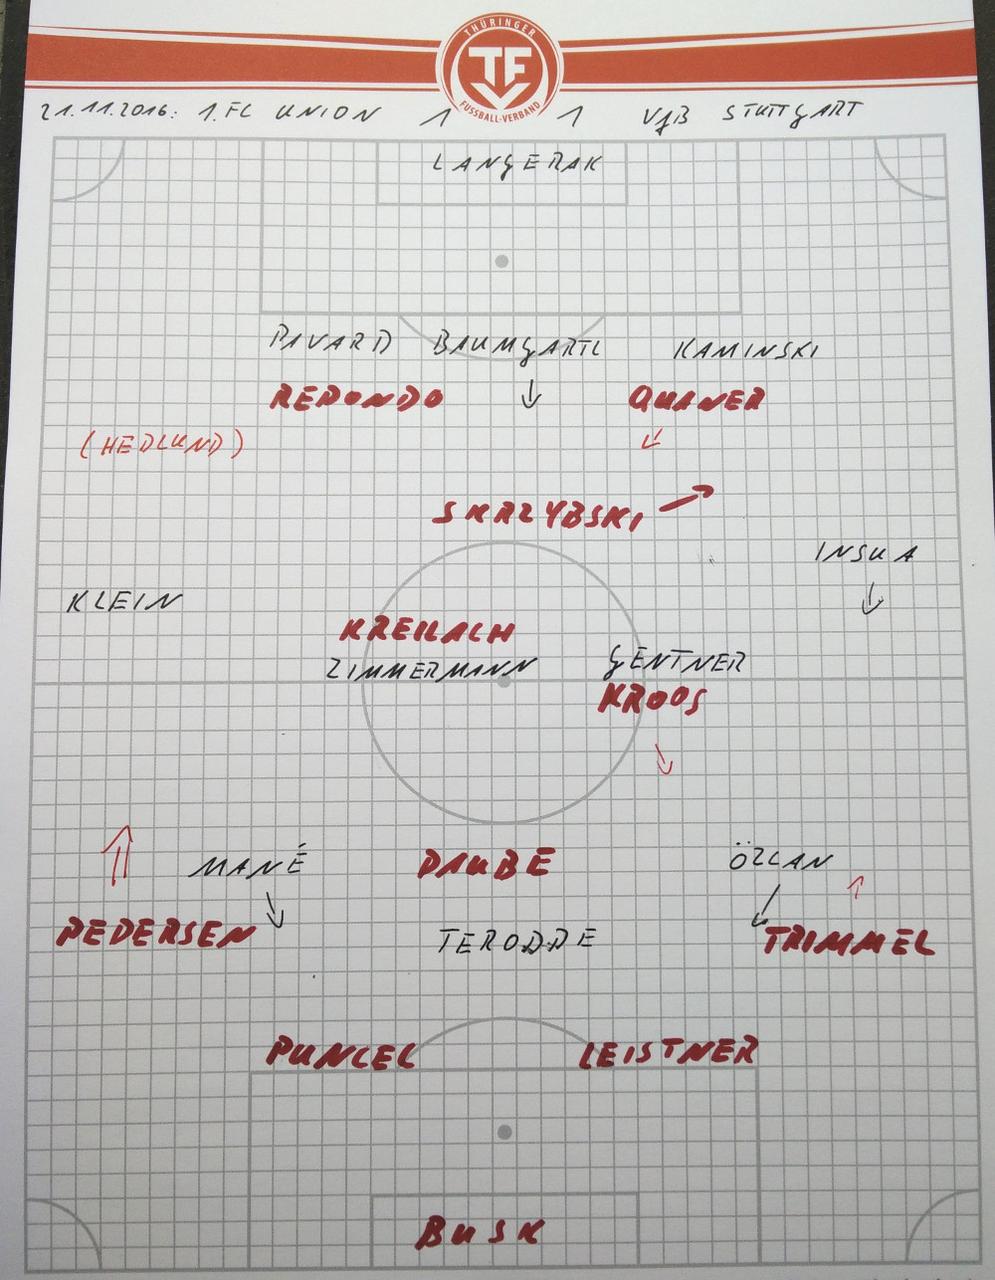 THÜRINGER
TFV
FUSSBALL-VERBAND
21.11.2016: 1.FC UNION 1 1 VfB STUTTGART
LANGERAK
PAVARD BAUMGARTL KAMINSKI
REDONDO QUANER
(HEDLUND)
SKRZYBSKI
INSUA
KLEIN
KREILACH
ZIMMERMANN GENTNER
KROOS
MANÉ DAUBE ÖZCAN
PEDERSEN TERODDE TRIMMEL
PUNCEL LEISTNER
BUSK